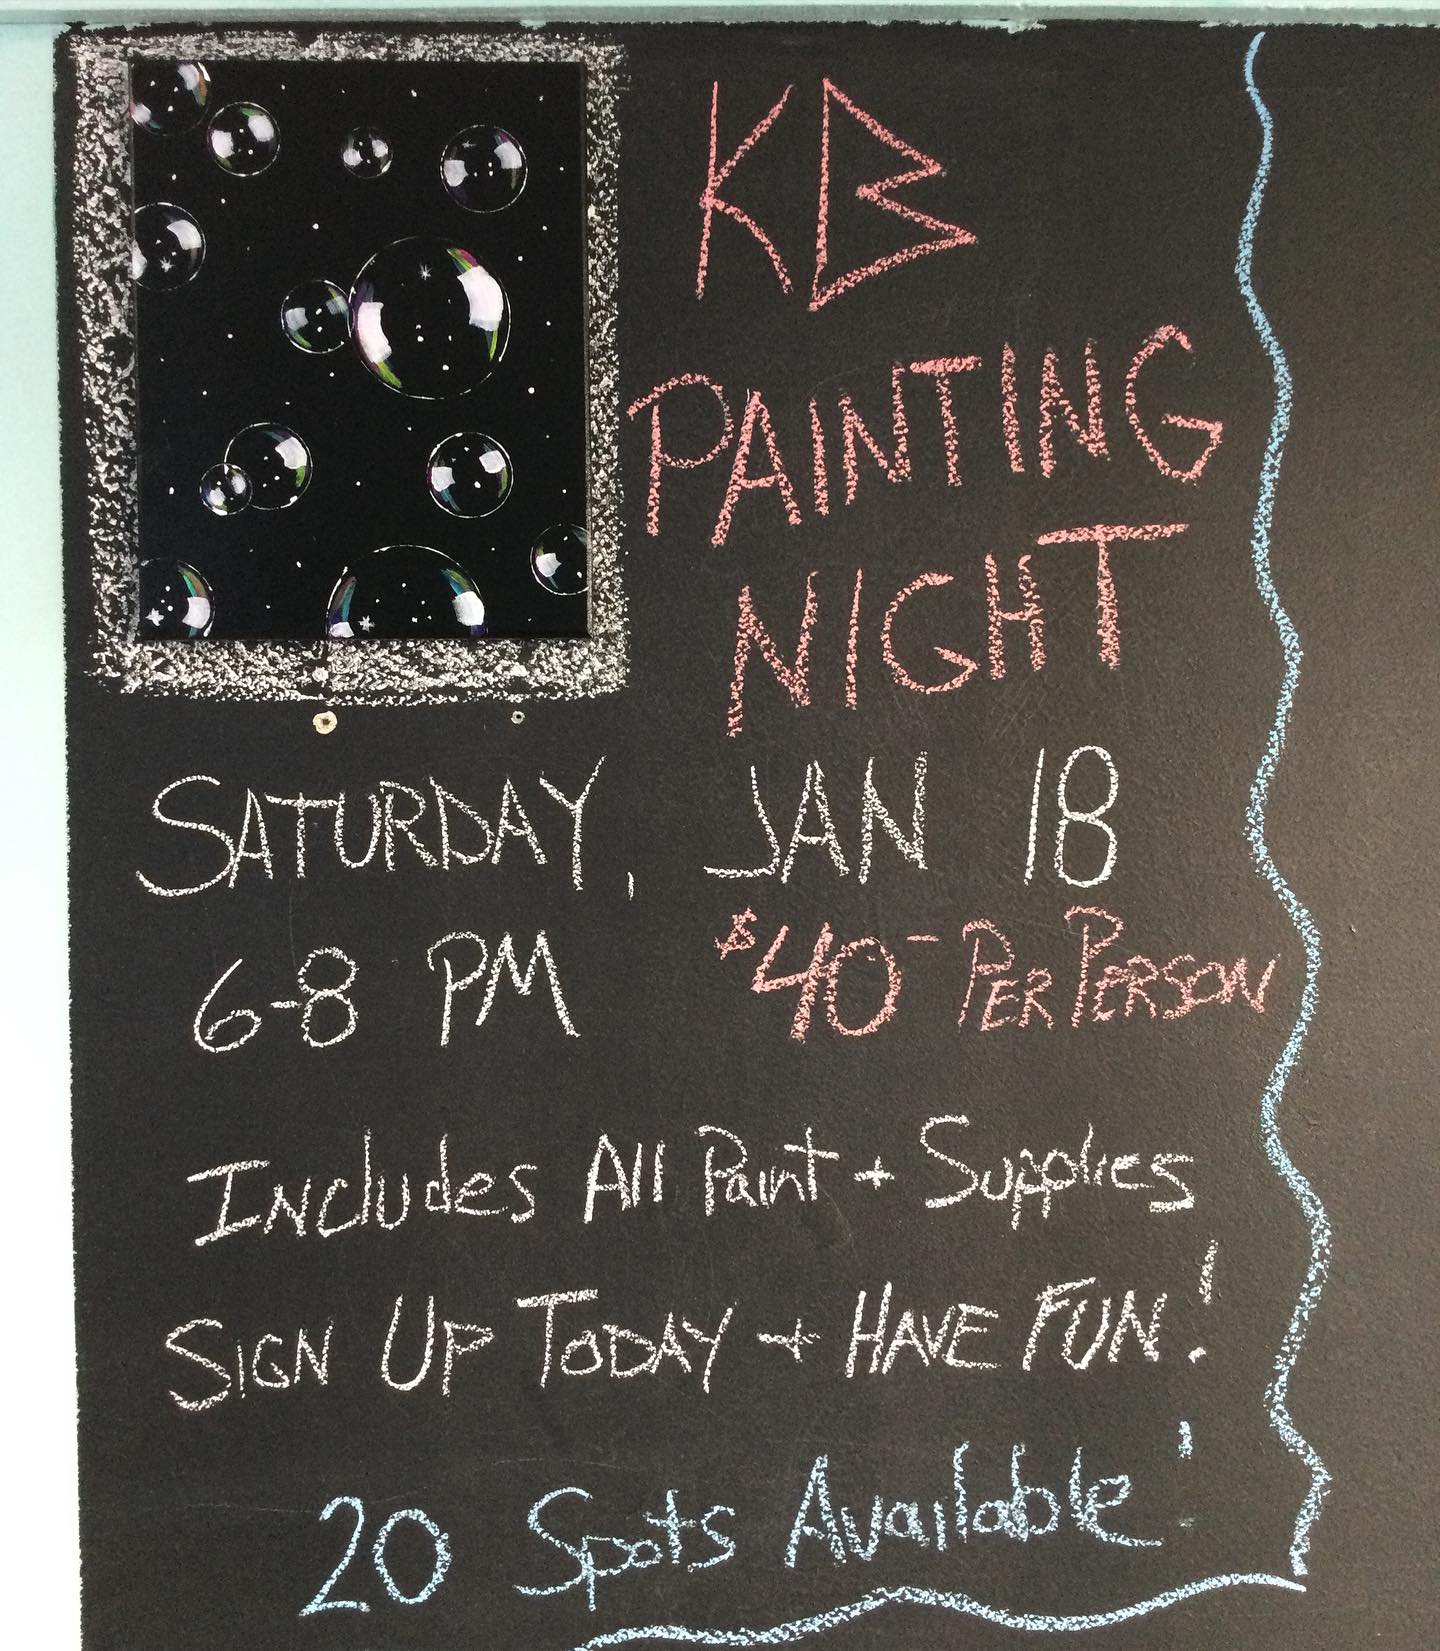 KB
PAINTING
NIGHT
SATURDAY, JAN 18
6-8 PM $40 - PER PERSON
INcludes All Paint + Supplies
SIGN UP TODAY + HAVE FUN!
20 Spots Available!